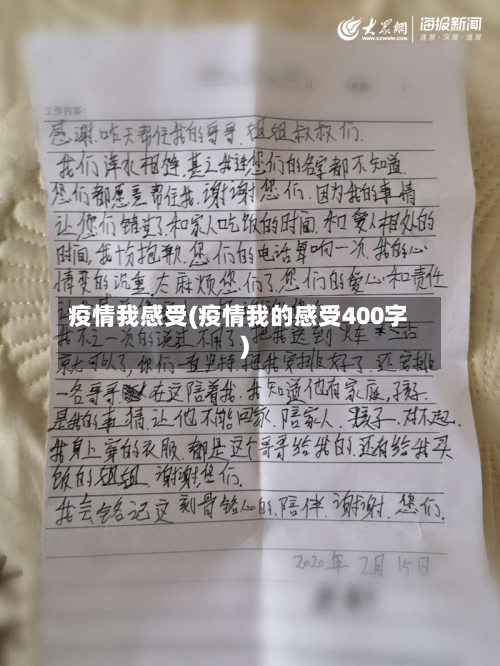 大众网
WWW.DZWWW.COM
海报新闻
速度·深度·温度
工作内容：
感谢昨天帮住我的哥哥.姐姐叔叔们.
我们萍水相逢.甚至我连您们的名字都不知道.
您们都愿意帮住我.谢谢您们.因为我的事情
让您们错过了和家人吃饭的时间.和爱人相处的
时间.我十分抱歉.您们的电话每响一次.我的心
情变的沉重.太麻烦您们了.您们的爱心和责任
疫情我感受(疫情我的感受400字
)
我不止一次的说过不用了把我送到火车站
就可以了.你们一直坚持把我安排好了.还安排
一名哥哥在这陪着我.我知道他有家庭,孩子.
是我的事情.让他不能回家.陪家人.孩子.对不起.
我身上穿的衣服.都是这个哥哥给我的.还有给我买
饭的姐姐.谢谢您们.
我会铭记这刻骨铭心的.陪伴.谢谢.您们.
2020年2月15日